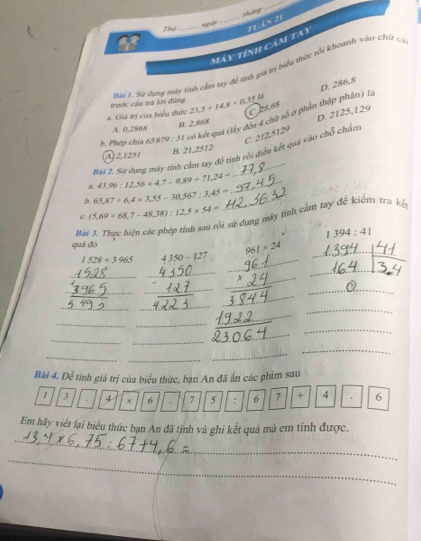 Thứ ........ ngày ........ tháng ........
TUẦN 21
MÁY TÍNH CẦM TAY
Bài 1. Sử dụng máy tính cầm tay để tính giá trị biểu thức rồi khoanh vào chữ cái
trước câu trả lời đúng
a. Giá trị của biểu thức 23,5 + 14,8 × 0,35 là
A. 0,2868 B. 2,868 C. 28,68 D. 286,8
b. Phép chia 65879 : 31 có kết quả (lấy đến 4 chữ số ở phần thập phân) là
A. 2,1251 B. 21,2512 C. 212,5129 D. 2125,129
Bài 2. Sử dụng máy tính cầm tay để tính rồi điền kết quả vào chỗ chấm
a. 43,96 : 12,56 × 4,7 – 9,89 + 71,24 = 77,8
b. 65,87 + 6,4 × 3,55 – 30,567 : 3,45 =
c. (5,69 + 68,7 – 48,38) : 12,5 × 54 = 112,3632
Bài 3. Thực hiện các phép tính sau rồi sử dụng máy tính cầm tay để kiểm tra kết
quả đó
1 528 + 3 965 4 350 – 127 961 × 24 1 394 : 41
1528 4350 961 1394 41
+ 3965 - 127 × 24 164 3,4
5493 4223 3844 0
1922
23064
Bài 4. Để tính giá trị của biểu thức, bạn An đã ấn các phím sau
1 3 . 4 × 6 . 7 5 : 6 7 + 4 . 6
Em hãy viết lại biểu thức bạn An đã tính và ghi kết quả mà em tính được.
13,4 × 6,75 : 67 + 4,6 =